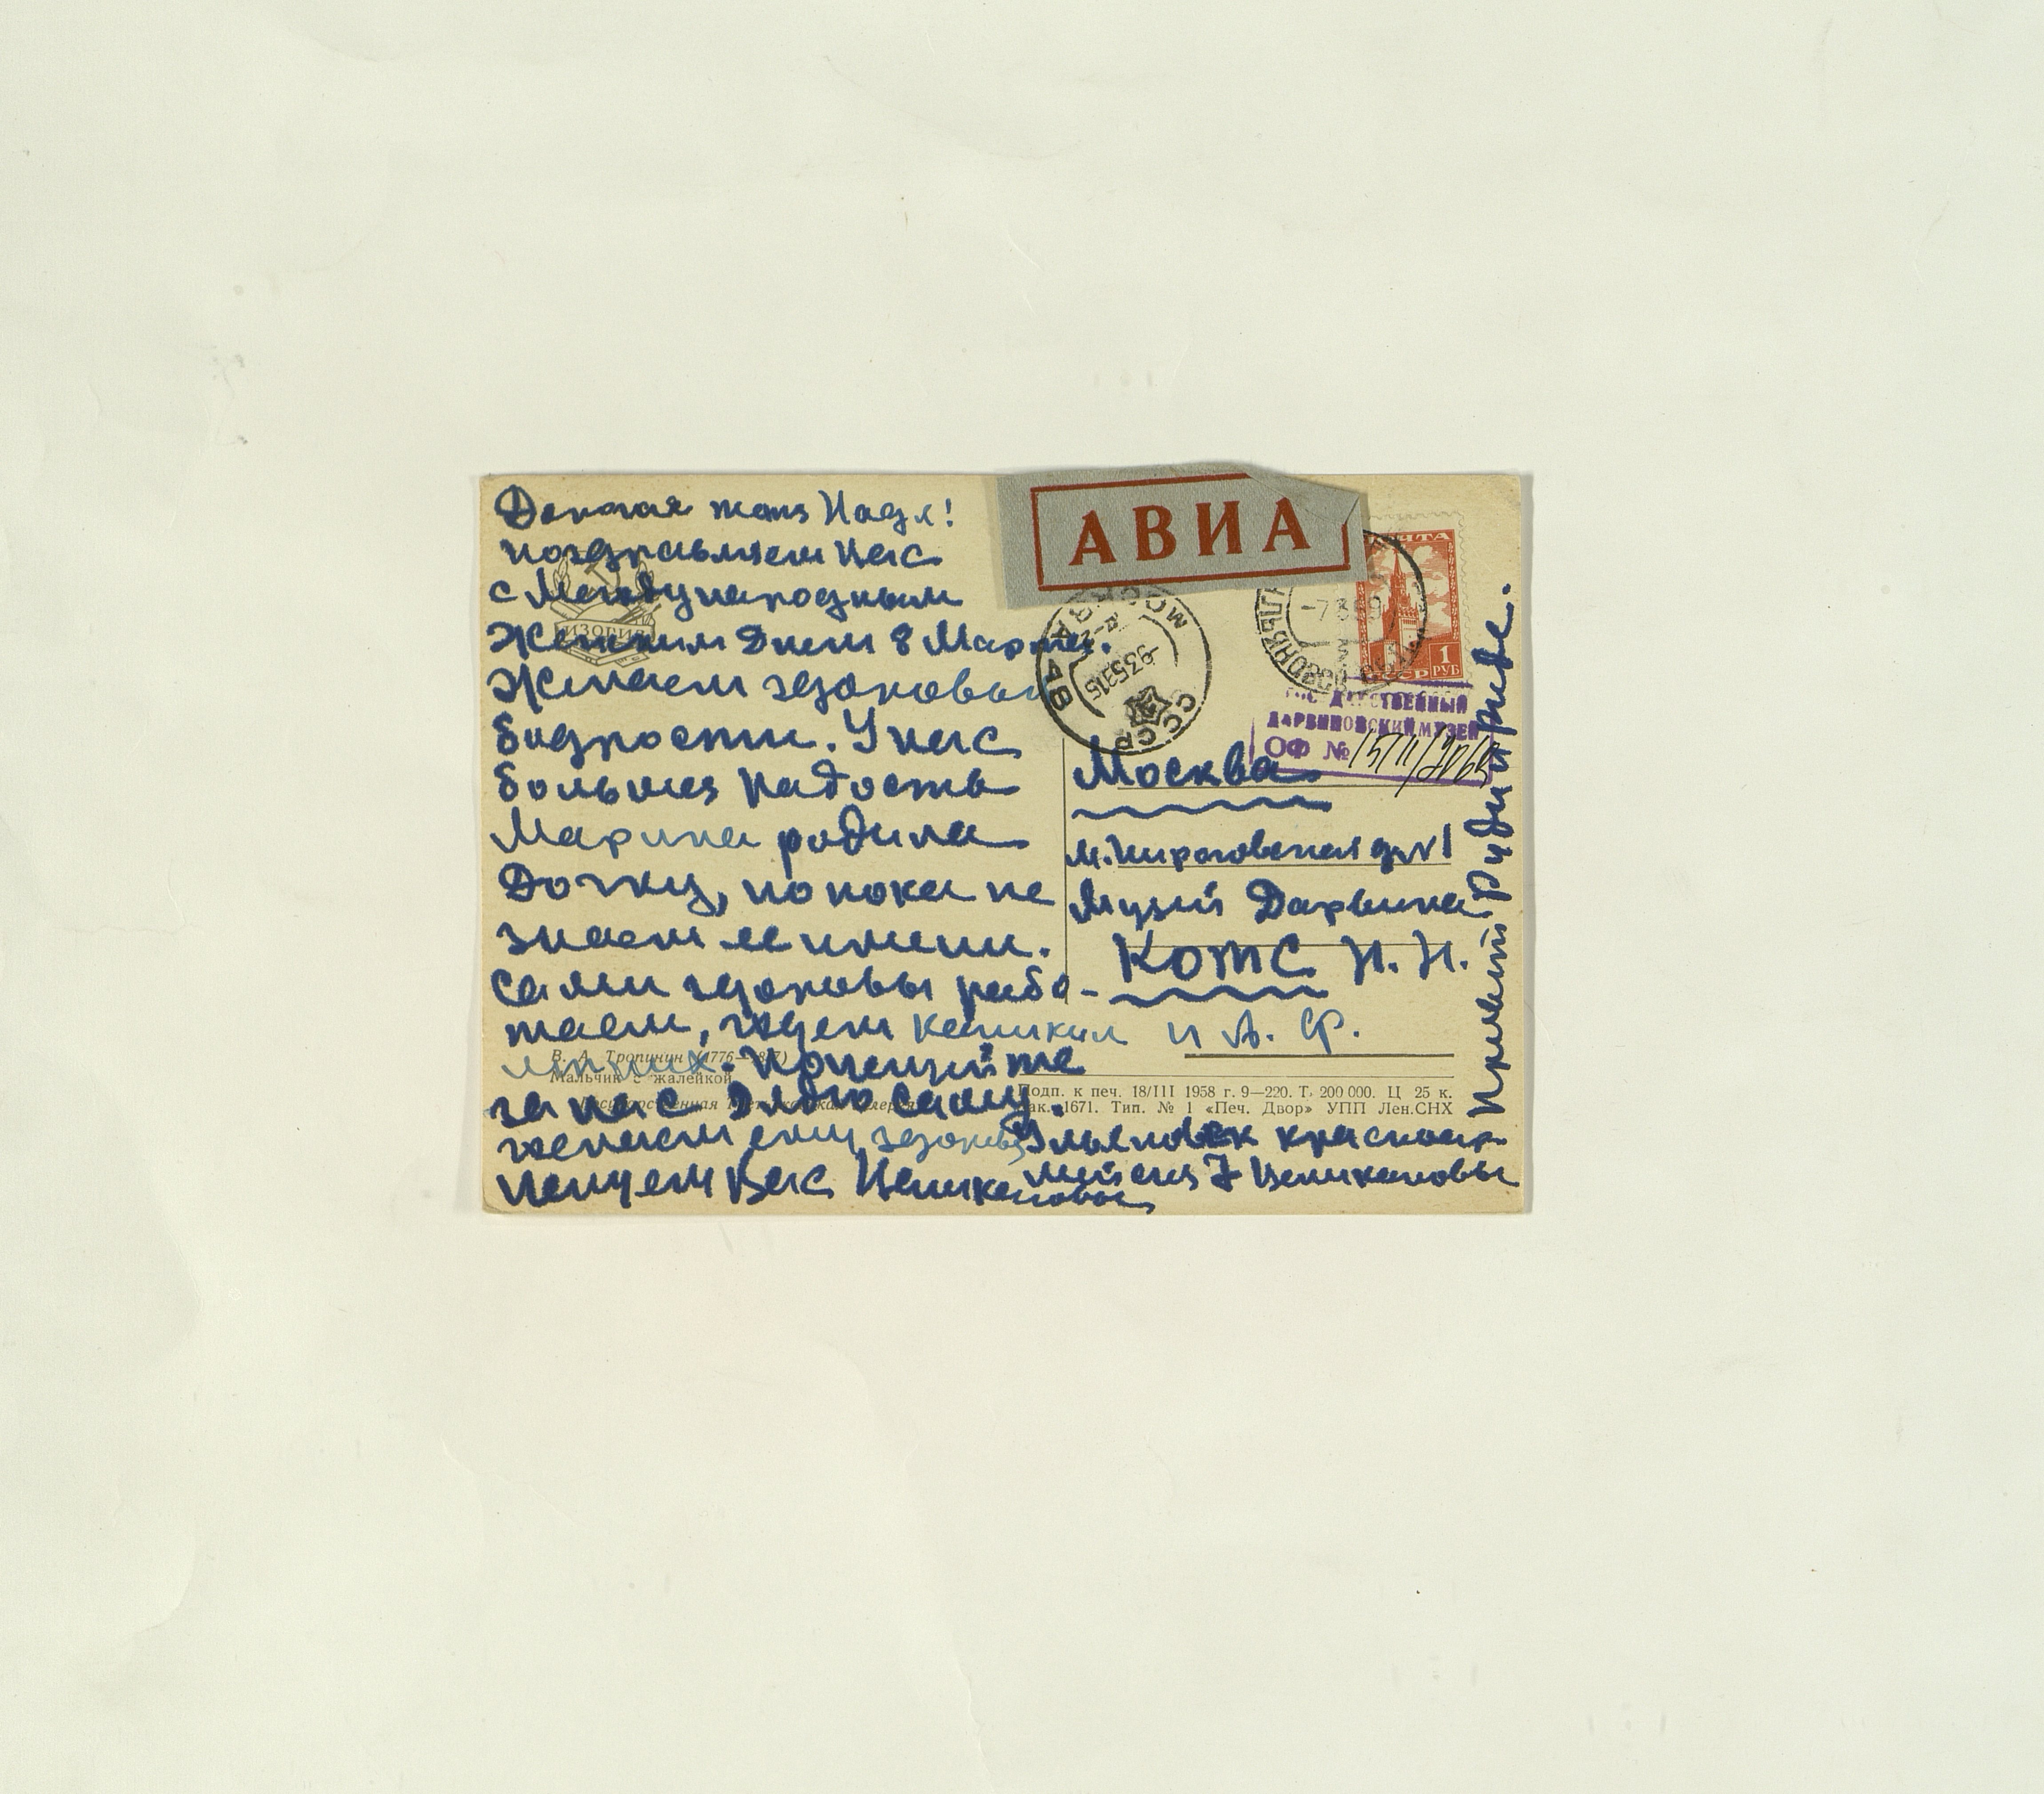 Дорогая тетя Надя!
поздравляем Вас
с Международным
Женским Днем 8 Марта.
Желаем здоровья
бодрости. У нас
большая радость
Марина родила
Дочку, но пока не
знаем ее имени.
Сами здоровы рабо-
таем, ждем каникул
летних. Поцелуйте
за нас Дядю Сашу.
желаем ему здоровья
Целуем Вас Великановы
АВИА
МОСКВА 48
СССР
-7 3 59
ПОЧТА СССР
1 РУБ
ГОСУДАРСТВЕННЫЙ
ДАРВИНОВСКИЙ МУЗЕЙ
ОФ №
Москва
М. Пироговская д N 1
Музей Дарвина
КОТС Н. Н.
и А. Ф.
Ульяновск красноар-
мейская 7 Великановы
Привет Руди и
ИЗОГИЗ
В. А. Тропинин (1776—1857)
Мальчик с жалейкой
Государственная Третьяковская галерея
Подп. к печ. 18/III 1958 г. 9—220. Т. 200 000. Ц 25 к.
Зак. 1671. Тип. № 1 «Печ. Двор» УПП Лен.СНХ